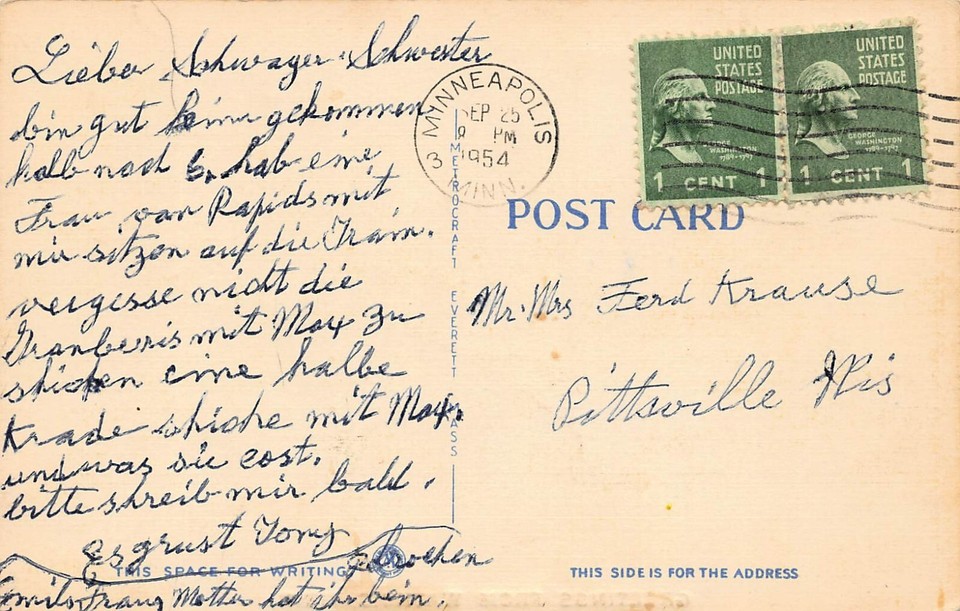 Lieber Schwager Schwester
bin gut heim gekommen
halb nach 6, hab eine
Frau von Rapids mit
mir sitzen auf die Train.
vergesse nicht die
Granberis mit Max zu
shicken eine halbe
Krade shicke mit Max
und was sie cost.
bitte shreib mir bald.
Es grust Tony
Emils Franz Motter hat ihr bein
gebrochen
MINNEAPOLIS
SEP 25
9 PM
1954
3
MINN.
UNITED
STATES
POSTAGE
GEORGE
WASHINGTON
1789-1797
1 CENT 1
UNITED
STATES
POSTAGE
GEORGE
WASHINGTON
1789-1797
1 CENT 1
POST CARD
METROCRAFT EVERETT MASS
Mr. Mrs Ferd Krause
Pittsville Wis
THIS SPACE FOR WRITING
THIS SIDE IS FOR THE ADDRESS